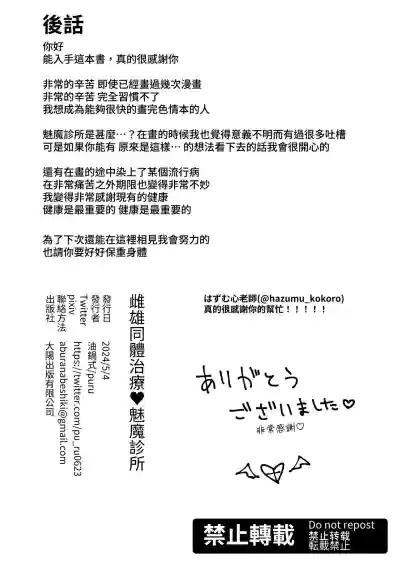 後話
你好
能入手這本書，真的很感謝你
非常的辛苦 即使已經畫過幾次漫畫
非常的辛苦 完全習慣不了
我想成為能夠很快的畫完色情本的人
魅魔診所是甚麼…？在畫的時候我也覺得意義不明而有過很多吐槽
可是如果你能有 原來是這樣… 的想法看下去的話我會很開心的
還有在畫的途中染上了某個流行病
在非常痛苦之外期限也變得非常不妙
我變得非常感謝現有的健康
健康是最重要的 健康是最重要的
為了下次還能在這裡相見我會努力的
也請你要好好保重身體
雌雄同體治療♥魅魔診所
發行日 2024/5/4
發行者 油鍋式/puru
Twitter https://twitter.com/pu_ru0623
pixiv
聯絡方法 aburanabeshiki@gmail.com
出版社 大陽出版有限公司
はずむ心老師(@hazumu_kokoro)
真的很感謝你的幫忙！！！！！
ありがとう
ございました♡
非常感謝♡
禁止轉載
Do not repost
禁止转载
転載禁止